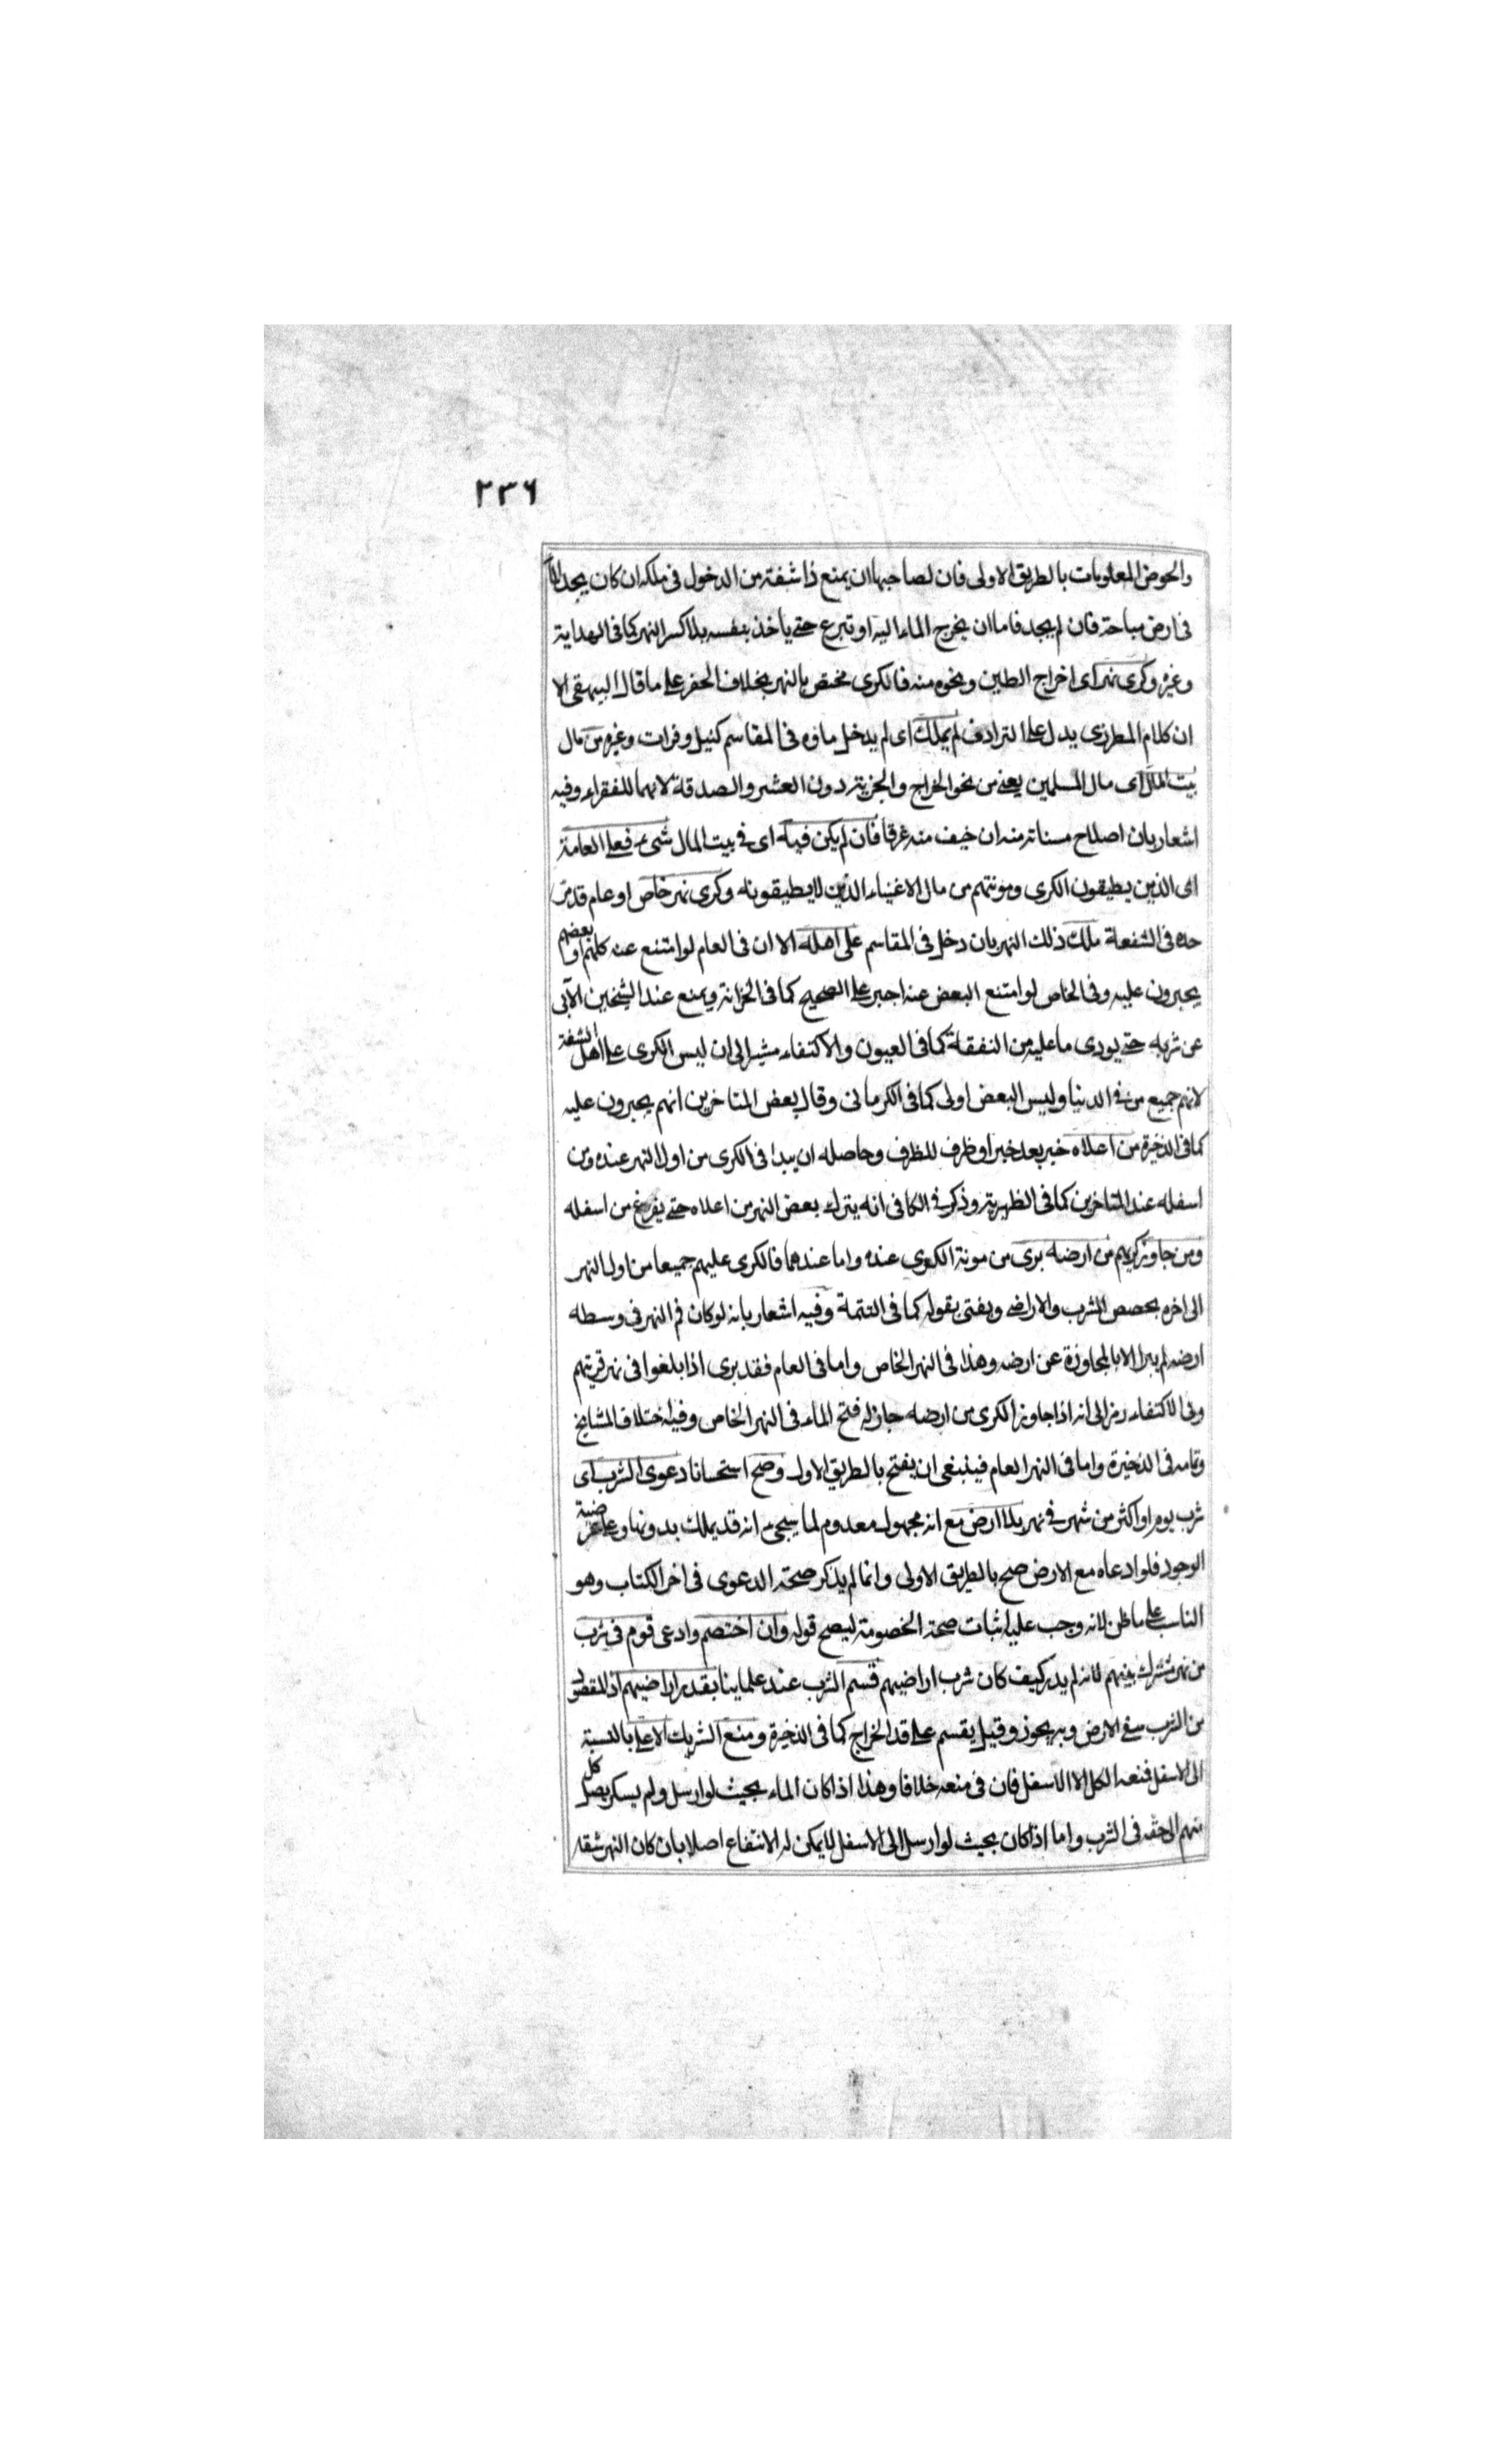 ٢٣٦
والحوض المعلومات بالطريق الاولى فان لصاحبها ان يمنع ذا شفة من الدخول فى ملكه ان كان يجد الماء
فى ارض مباحة فان لم يجد فاما ان يخرج الماء اليه او تبرع حتى ياخذ بنفسه بلا كسر النهر كما فى الهداية
وغيره وكرى نهر اى اخراج الطين ونحوه منه فالكرى مختص بالنهر بخلاف الحفر على ما قال البيهقى الا
ان كلام المطرزى يدل على الترادف لم يملك اى لم يدخل ماؤه فى المقاسم كنيل وفرات وغيره من مال
بيت المال اى مال المسلمين يعنى من نحو الخراج والجزية دون العشر والصدقة لانهما للفقراء وفيه
اشعار بان اصلاح مسناته منه ان خيف منه غرقا فان لم يكن فيه اى فى بيت المال شىء فعلى العامة
اى الذين يطيقون الكرى ومؤنتهم من مال الاغنياء الذين لا يطيقونه وكرى نهر خاص او عام قد مر
حده فى الشفعة ملك ذلك النهر بان دخل فى المقاسم على اهله الا ان فى العام لو امتنع عنه كلهم او بعضهم
يجبرون عليه وفى الخاص لو امتنع البعض عنه اجبر على الصحيح كما فى الخزانة ويمنع عند الشيخين الآبى
عن شربه حتى يودى ما عليه من النفقة كما فى العيون والاكتفاء مشير الى ان ليس الكرى على اهل الشفة
لانهم جميع من فى الدنيا وليس البعض اولى كما فى الكرمانى وقال بعض المتاخرين انهم يجبرون عليه
كما فى الذخيرة من اعلاه خبر بعد خبر او ظرف للظرف وحاصله ان يبدا فى الكرى من اول النهر عنده ومن
اسفله عند المتاخرين كما فى الظهيرية وذكر فى الكافى انه يترك بعض النهر من اعلاه حتى يفرغ من اسفله
ومن جاوز كريهم من ارضه برى من مونة الكرى عنده واما عندهما فالكرى عليهم جميعا من اول النهر
الى اخره بحصص الشرب والاراضى ويفتى بقوله كما فى التتمة وفيه اشعار بانه لو كان فم النهر فى وسطه
ارضه لم يبرا الا بالمجاوزة عن ارضه وهذا فى النهر الخاص واما فى العام فقد برى اذا بلغوا فى نهر قريتهم
وفى الاكتفاء رمز الى انه اذا جاوز الكرى من ارضه جاز له فتح الماء فى النهر الخاص وفيه اختلاف المشايخ
وتمامه فى الذخيرة واما فى النهر العام فينبغى ان يفتح بالطريق الاولى وصح استحسانا دعوى الشرب اى
شرب يوم او اكثر من شهر فى نهر بلا ارض مع انه مجهول معدوم لما سيجىء انه قد يملك بدونها وعلى عرضية
الوجود فلو ادعاه مع الارض صح بالطريق الاولى وانما لم يذكر صحة الدعوى فى اخر الكتاب وهو
الناسب على ما ظن لانه وجب عليه اثبات صحة الخصومة ليصح قوله وان اختصم وادعى قوم فى شرب
من نهر مشترك بينهم لانه لم يدر كيف كان شرب اراضيهم قسم الشرب عند علماينا بقدر اراضيهم اذ المقصود
من الشرب سقى الارض وبه يجوز وقيل يقسم على قدر الخراج كما فى الذخيرة ومنع الشريك الاعلى بالنسبة
الى الاسفل فمنعه الكل الا الاسفل فان فى منعه خلافا وهذا اذا كان الماء بحيث لو ارسل ولم يسكر يصل كل
منهم الى حقه فى الشرب واما اذا كان بحيث لو ارسل الى الاسفل لا يمكن له الانتفاع اصلا بان كان النهر شقه